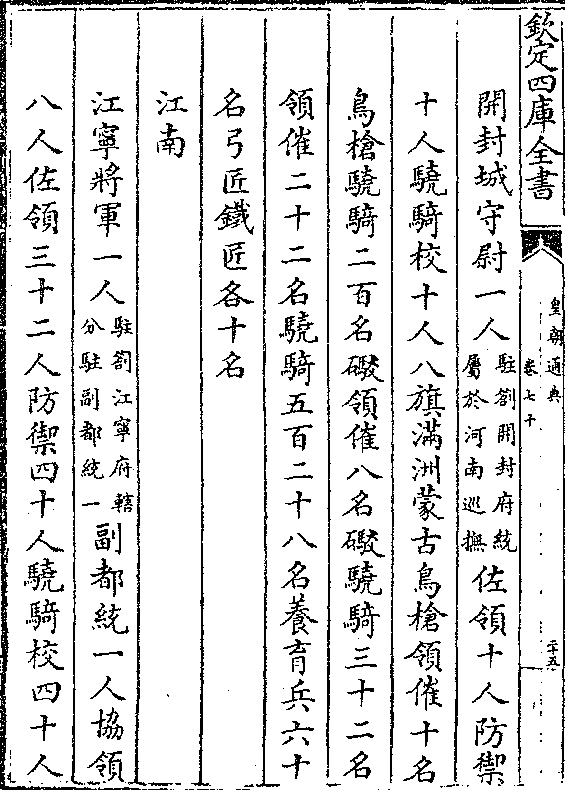 欽定四庫全書
皇朝通典
卷七十
二十五
開封城守尉一人駐劄開封府統屬於河南巡撫佐領十人防禦
十人驍騎校十人八旗滿洲蒙古鳥槍領催十名
鳥槍驍騎二百名礮領催八名礮驍騎三十二名
領催二十二名驍騎五百二十八名養育兵六十
名弓匠鐵匠各十名
江南
江寧將軍一人駐劄江寧府轄分駐副都統一副都統一人協領
八人佐領三十二人防禦四十人驍騎校四十人